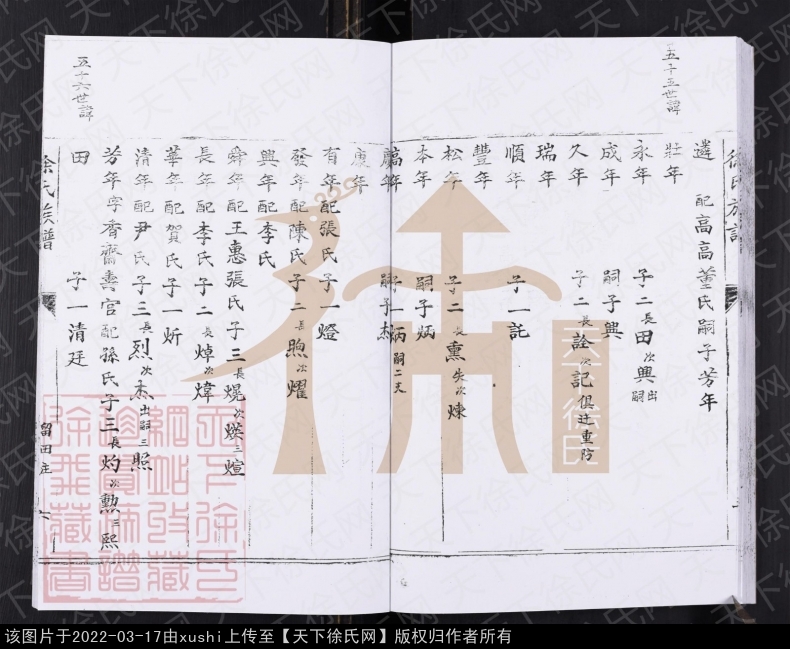 徐氏族譜
五十五世諱
遴 配高高董氏嗣子芳年
壯年
永年 子二長田次興出嗣
成年 嗣子興
久年 子二長詮次記俱迁重防
瑞年
順年 子一託
豐年
松年 子二長熏失次煉
本年 嗣子炳
年 嗣子杰
康年
有年配張氏子一燈
發年配陳氏子二長煦次燿
興年配李氏
舜年配王惠張氏子三長熀次煐三煊
長年配李氏子二長焯次煒
華年配賀氏子一炘
清年配尹氏子三長烈次杰出嗣三照
芳年字香齋壽官配孫氏子三長灼次勲三熙
五十六世諱
田 子一清廷
徐氏族譜
留田庄
六
天下徐氏
天下徐氏网
该图片于2022-03-17由xushi上传至【天下徐氏网】版权归作者所有